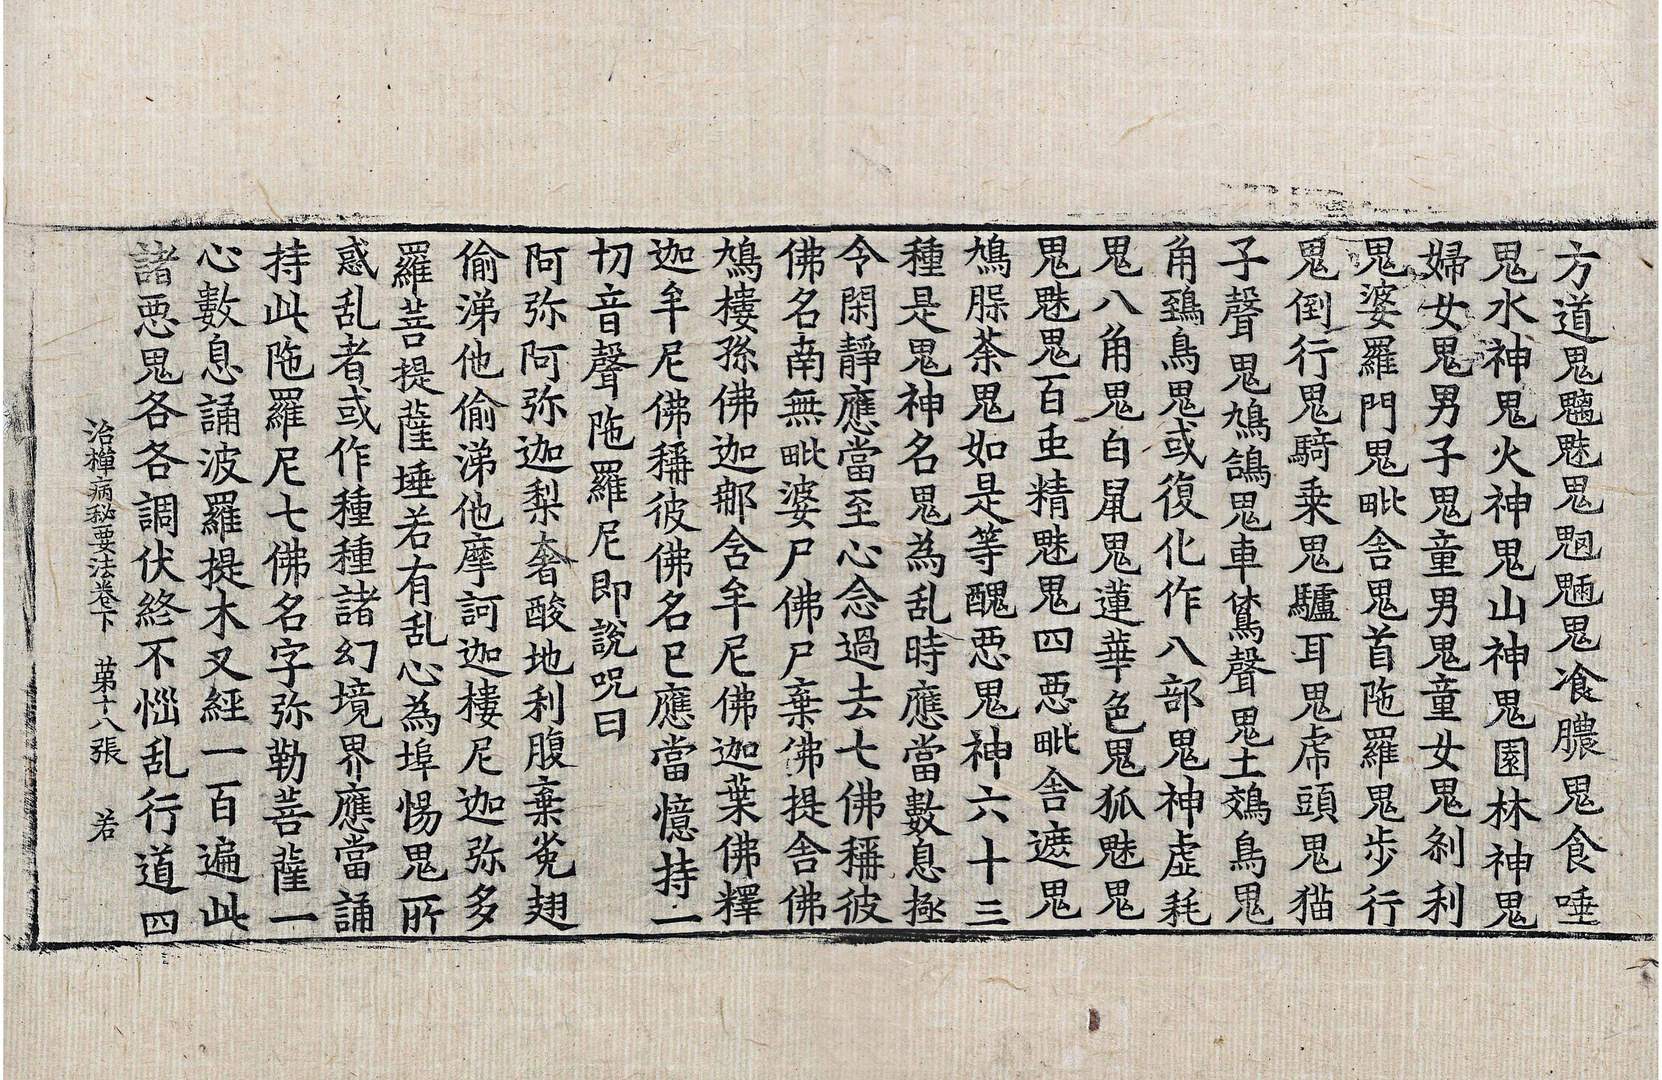 方道鬼魑魅鬼魍魎鬼飡膿鬼食唾
鬼水神鬼火神鬼山神鬼園林神鬼
婦女鬼男子鬼童男鬼童女鬼剎利
鬼婆羅門鬼毗舍鬼首陁羅鬼步行
鬼倒行鬼騎乗鬼驢耳鬼虎頭鬼猫
子聲鬼鳩鴿鬼車鵞聲鬼土鵁鳥鬼
角鵄鳥鬼或復化作八部鬼神虛耗
鬼八角鬼白鼠鬼蓮華色鬼狐魅鬼
鬼魅鬼百虫精魅鬼四惡毗舍遮鬼
鳩脲荼鬼如是等醜惡鬼神六十三
種是鬼神名鬼為乱時應當數息極
令閑靜應當至心念過去七佛稱彼
佛名南無毗婆尸佛尸棄佛提舍佛
鳩樓孫佛迦郍含牟尼佛迦葉佛釋
迦牟尼佛稱彼佛名已應當憶持一
切音聲陁羅尼即說呪曰
阿弥阿弥迦梨奢酸地利腹棄㝹翅
偷涕他偷涕他摩訶迦樓尼迦弥多
羅菩提薩埵若有乱心為埠惕鬼所
惑乱者或作種種諸幻境界應當誦
持此陁羅尼七佛名字弥勒菩薩一
心數息誦波羅提木叉經一百遍此
諸惡鬼各各調伏終不惱乱行道四
治禪病秘要法卷下 苐十八張 若